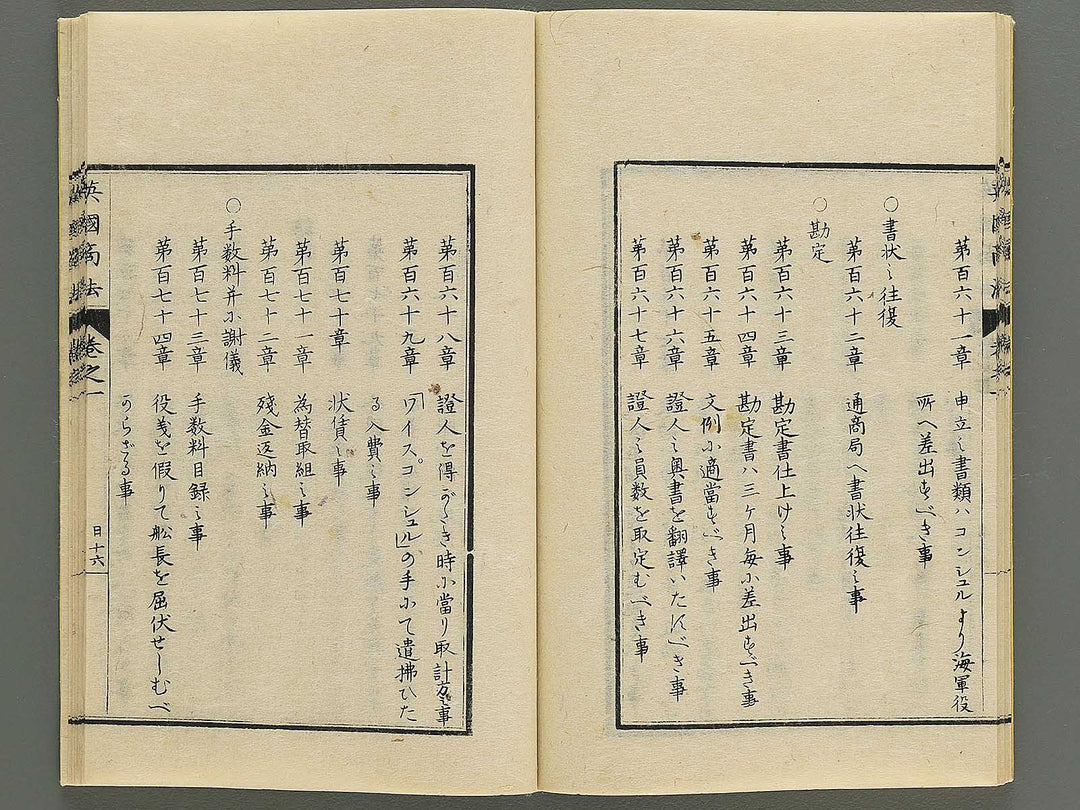 第百六十一章 申立之書類ハコンシュルより海軍役
所へ差出すべき事
○書状之往復
第百六十二章 通商局へ書状往復之事
○勘定
第百六十三章 勘定書仕上け之事
第百六十四章 勘定書ハ三ヶ月毎小差出すべき事
第百六十五章 文例小適當すべき事
第百六十六章 證人之奥書を翻譯いたすべき事
第百六十七章 證人之員数を取定むべき事
第百六十八章 證人を得がたき時小當り取計方之事
第百六十九章 「ワイス。コンシュル」の手小て遣拂ひた
る入費之事
第百七十章 状賃之事
第百七十一章 為替取組之事
第百七十二章 残金返納之事
○手数料并小謝儀
第百七十三章 手数料目録之事
第百七十四章 役義を假りて舩長を屈伏せしむべ
からざる事
英國商法 卷之一
目十六